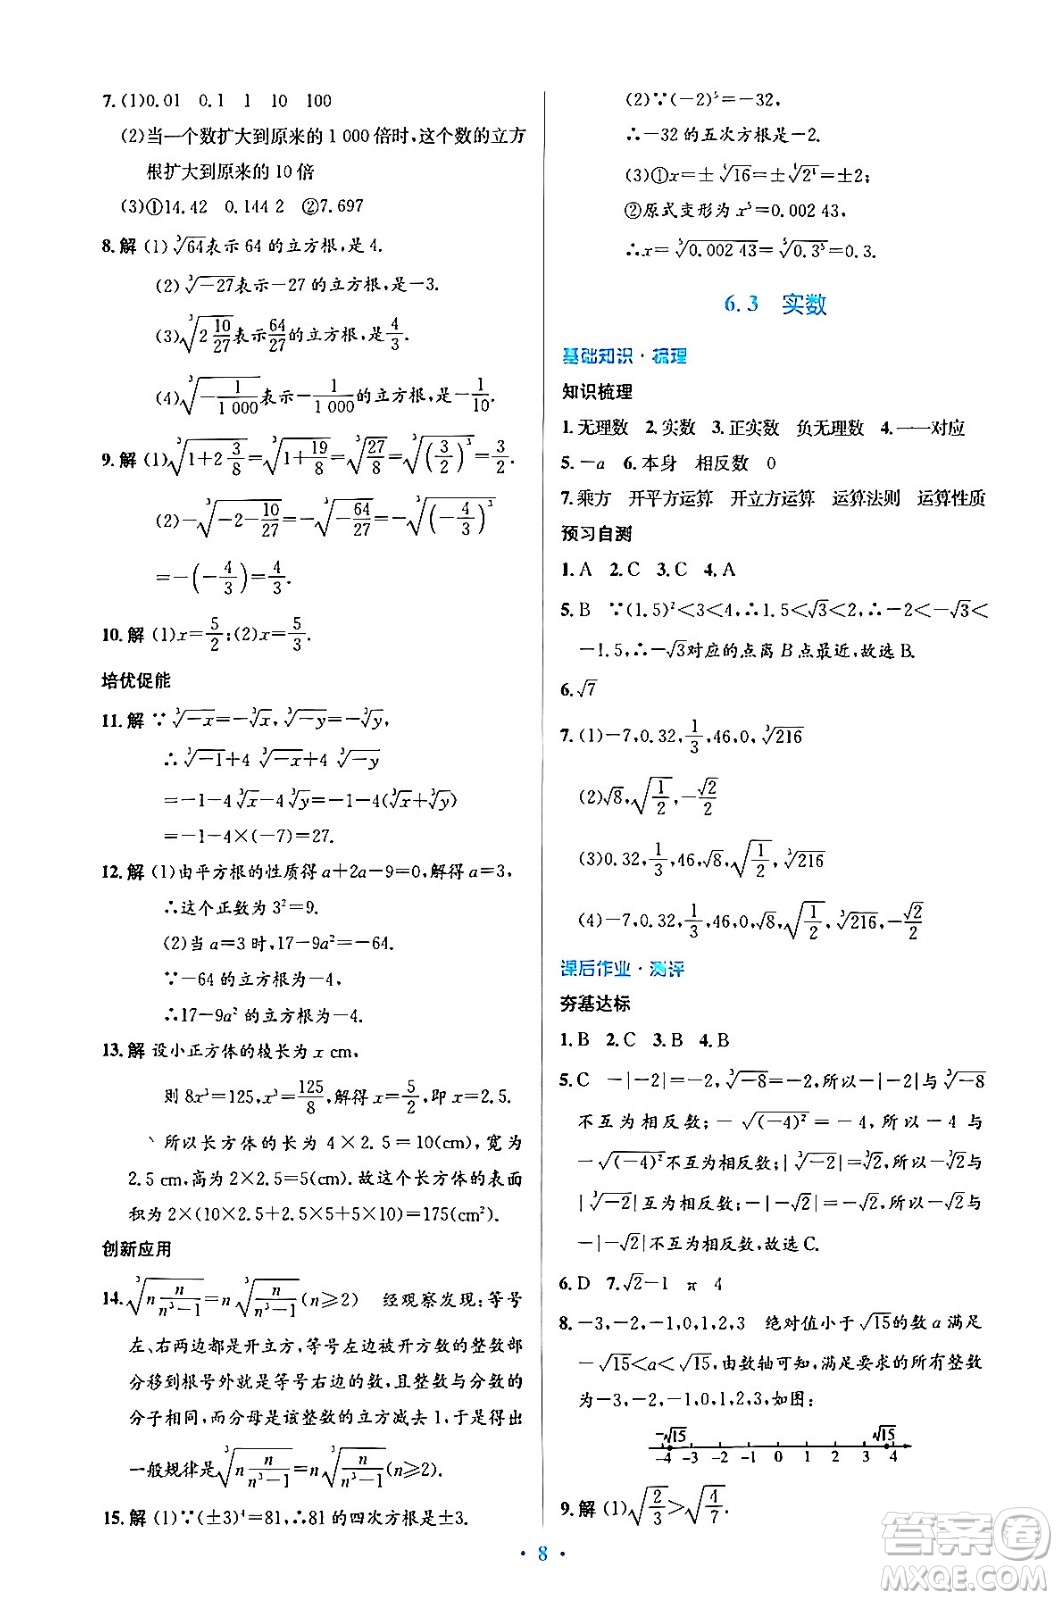 7.(1)0.01　0.1　1　10　100
(2)当一个数扩大到原来的1 000倍时,这个数的立方
根扩大到原来的10倍
(3)①14.42　0.144 2　②7.697
8.解 (1)∛64表示64的立方根,是4.
(2)∛-27表示-27的立方根,是-3.
(3)∛(2 10/27)表示64/27的立方根,是4/3.
(4)∛(-1/1 000)表示-1/1 000的立方根,是-1/10.
9.解 (1)∛(1+2 3/8)=∛(1+19/8)=∛(27/8)=∛((3/2)³)=3/2.
(2)-∛(-2-10/27)=-∛(-64/27)=-∛((-4/3)³)
=-(-4/3)=4/3.
10.解 (1)x=5/2;(2)x=5/3.
培优促能
11.解 ∵∛-x=-∛x,∛-y=-∛y,
∴∛-1+4∛-x+4∛-y
=-1-4∛x-4∛y=-1-4(∛x+∛y)
=-1-4×(-7)=27.
12.解 (1)由平方根的性质得a+2a-9=0,解得a=3,
∴这个正数为3²=9.
(2)当a=3时,17-9a²=-64.
∵-64的立方根为-4,
∴17-9a²的立方根为-4.
13.解 设小正方体的棱长为x cm,
则8x³=125,x³=125/8,解得x=5/2,即x=2.5.
所以长方体的长为4×2.5=10(cm),宽为
2.5 cm,高为2×2.5=5(cm).故这个长方体的表面
积为2×(10×2.5+2.5×5+10×5)=175(cm²).
创新应用
14.∛(n n/(n³-1))=n∛(n/(n³-1))(n≥2)　经观察发现:等号
左、右两边都是开立方,等号左边被开方数的整数部
分移到根号外就是等号右边的数,且整数与分数的
分子相同,而分母是该整数的立方减去1,于是得出
一般规律是∛(n n/(n³-1))=n∛(n/(n³-1))(n≥2).
15.解 (1)∵(±3)⁴=81,∴81的四次方根是±3.
(2)∵(-2)⁵=-32,
∴-32的五次方根是-2.
(3)①x=±⁴√16=±⁴√2⁴=±2;
②原式变形为x⁵=0.002 43,
∴x=⁵√0.002 43=⁵√0.3⁵=0.3.
6.3　实数
基础知识·梳理
知识梳理
1.无理数　2.实数　3.正实数　负无理数　4.一一对应
5.-a　6.本身　相反数　0
7.乘方　开平方运算　开立方运算　运算法则　运算性质
预习自测
1.A　2.C　3.C　4.A
5.B　∵(1.5)²<3<4,∴1.5<√3<2,∴-2<-√3<
-1.5,∴-√3对应的点离B点最近,故选B.
6.√7
7.(1)-7,0.32,1/3,46,0,∛216
(2)√8,√(1/2),-√2/2
(3)0.32,1/3,46,√8,√(1/2),∛216
(4)-7,0.32,1/3,46,0,√8,√(1/2),∛216,-√2/2
课后作业·测评
夯基达标
1.B　2.C　3.B　4.B
5.C　-|-2|=-2,∛-8=-2,所以-|-2|与∛-8
不互为相反数;-√(-4)²=-4,所以-4与
-√(-4)²不互为相反数;|∛-2|=∛2,所以-∛2与
|∛-2|互为相反数;-|-√2|=-√2,所以-√2与
-|-√2|不互为相反数,故选C.
6.D　7.√2-1　π　4
8.-3,-2,-1,0,1,2,3　绝对值小于√15的数a满足
-√15<a<√15,由数轴可知,满足要求的所有整数
为-3,-2,-1,0,1,2,3,如图:
-√15　√15
-4 -3 -2 -1 0 1 2 3 4
9.解 (1)√(2/3)>√(4/7).
·8·
答案圈
MXQE.COM